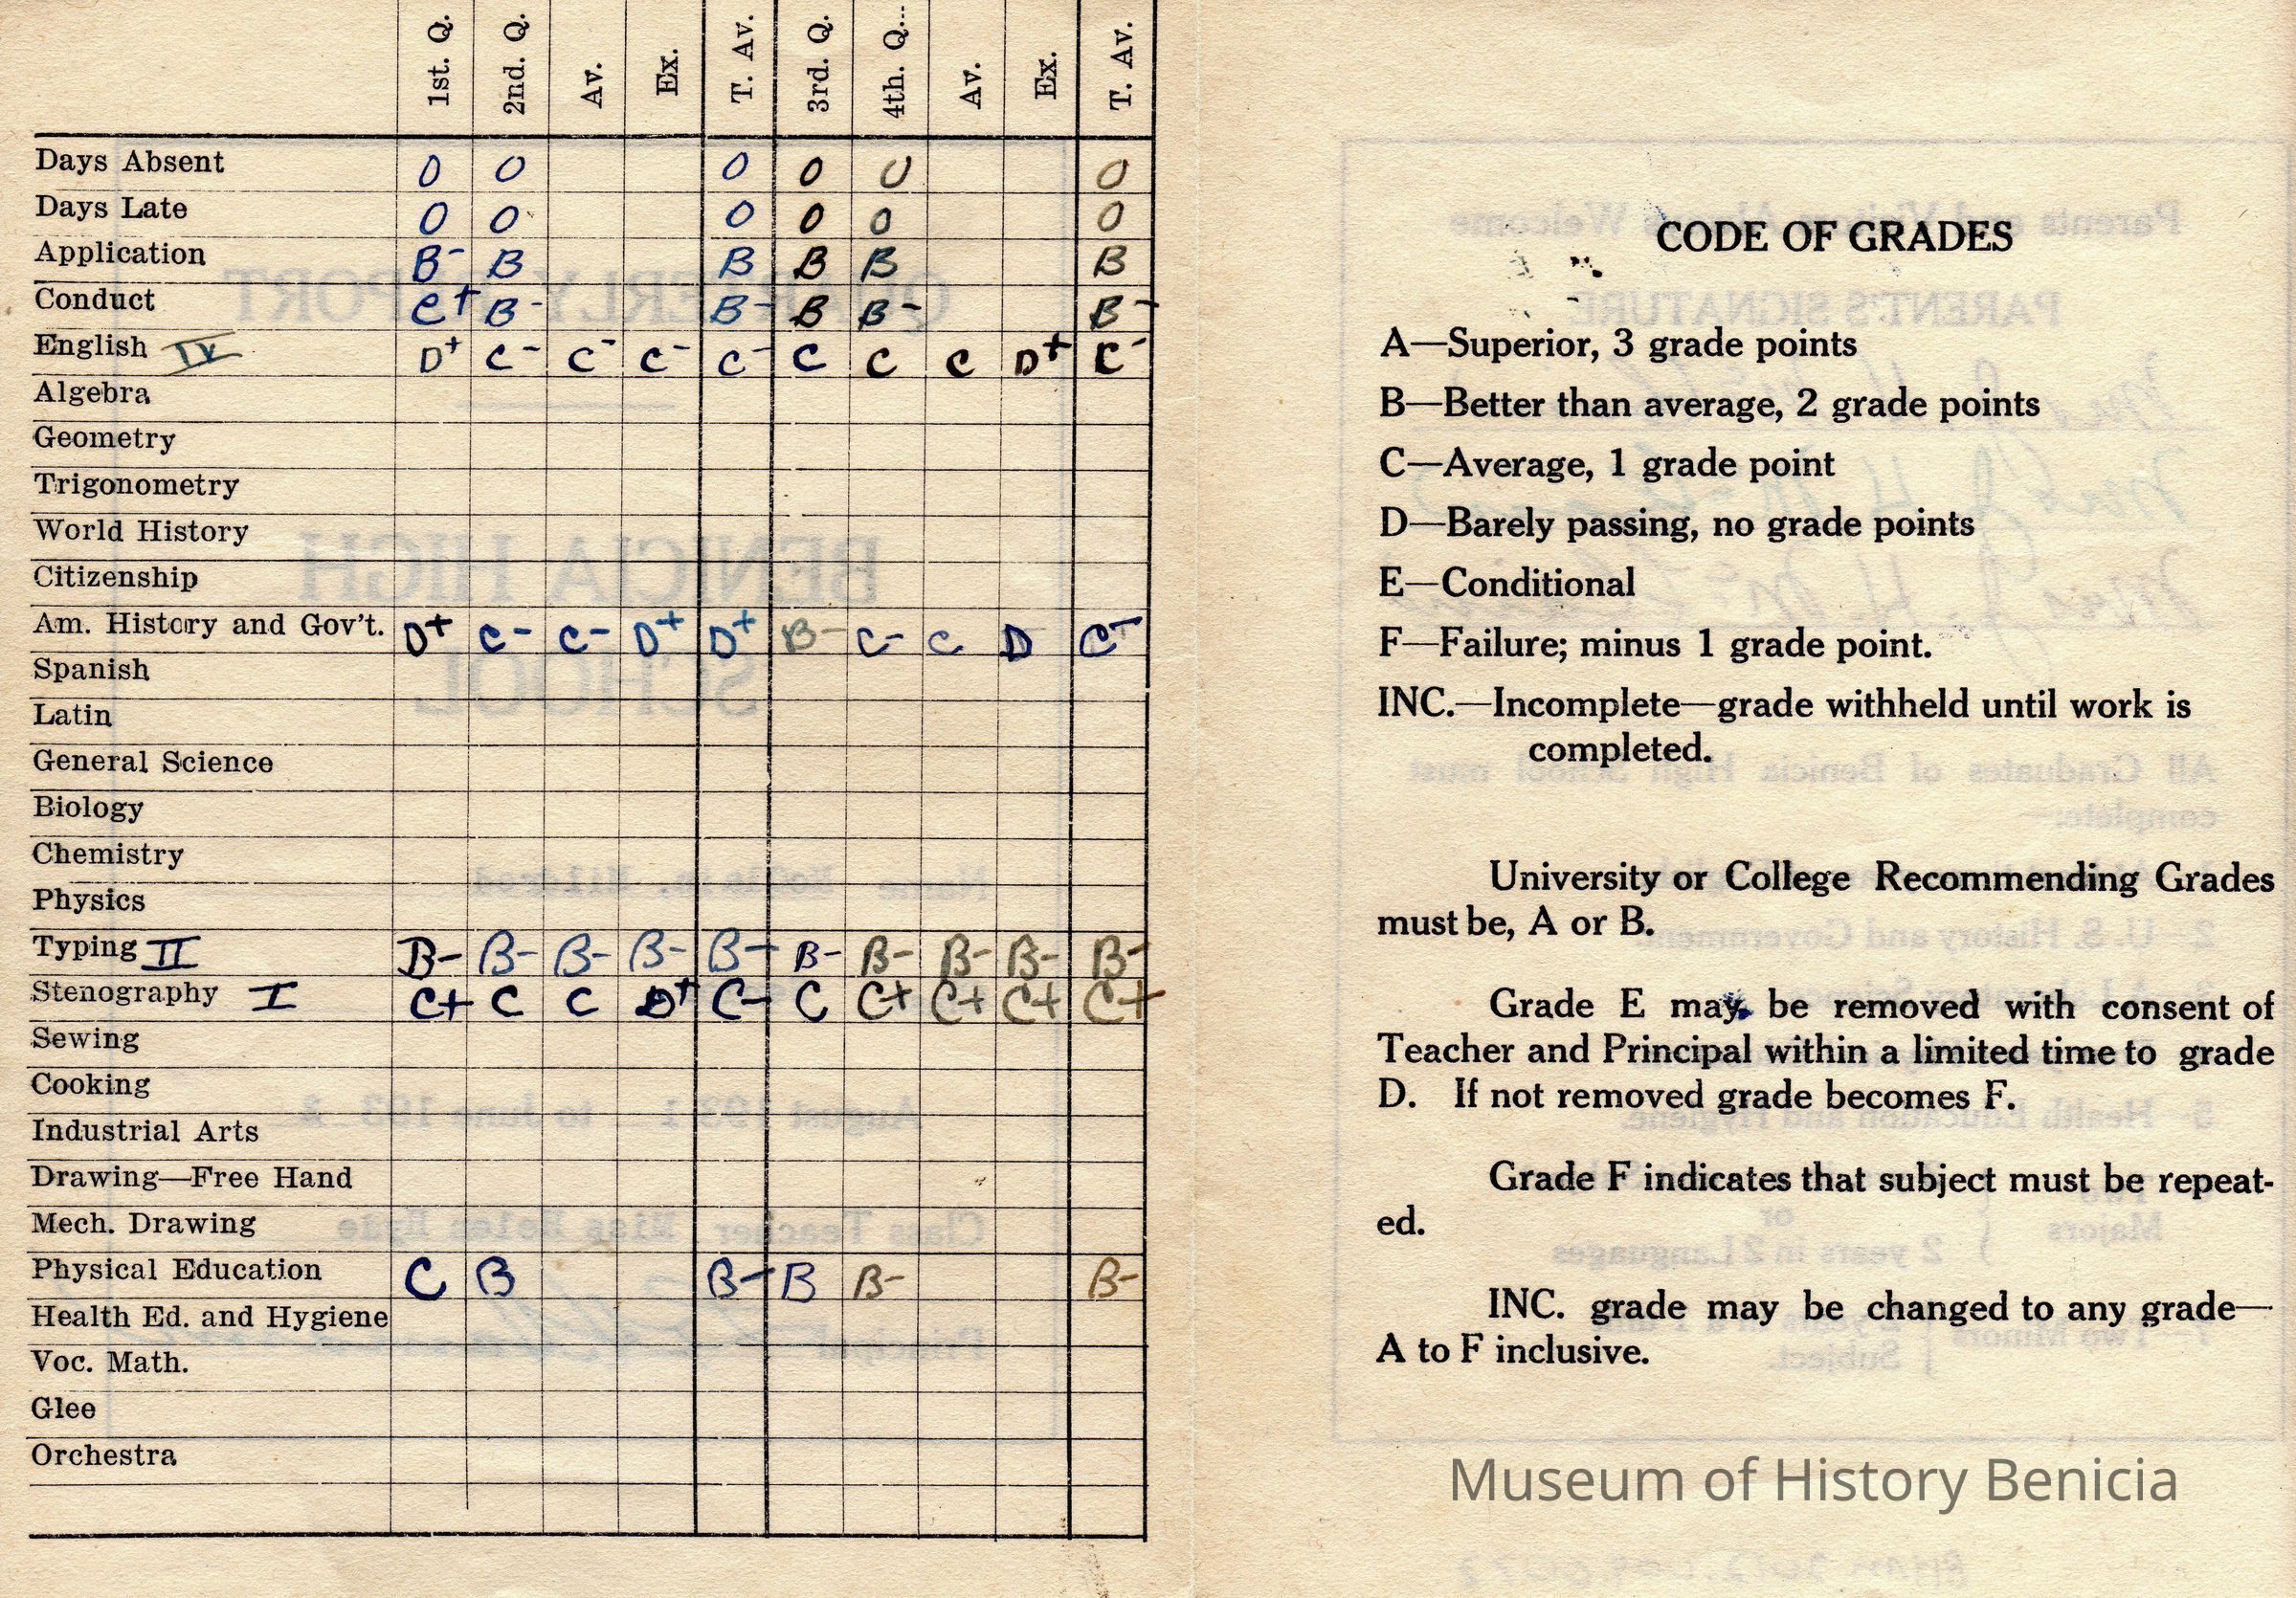 1st. Q. 2nd. Q. Av. Ex. T. Av. 3rd. Q. 4th. Q... Av. Ex. T. Av.
Days Absent 0 0 0 0 0 0
Days Late 0 0 0 0 0 0
Application B- B B B B B
Conduct C+ B- B- B B- B-
English IV D+ C- C- C- C- C C C D+ C-
Algebra
Geometry
Trigonometry
World History
Citizenship
Am. History and Gov't. D+ C- C- D+ D+ B- C- C D C-
Spanish
Latin
General Science
Biology
Chemistry
Physics
Typing II B- B- B- B- B- B- B- B- B- B-
Stenography I C+ C C D+ C- C C+ C+ C+ C+
Sewing
Cooking
Industrial Arts
Drawing—Free Hand
Mech. Drawing
Physical Education C B B- B B- B-
Health Ed. and Hygiene
Voc. Math.
Glee
Orchestra
CODE OF GRADES
A—Superior, 3 grade points
B—Better than average, 2 grade points
C—Average, 1 grade point
D—Barely passing, no grade points
E—Conditional
F—Failure; minus 1 grade point.
INC.—Incomplete—grade withheld until work is
completed.
University or College Recommending Grades
must be, A or B.
Grade E may be removed with consent of
Teacher and Principal within a limited time to grade
D. If not removed grade becomes F.
Grade F indicates that subject must be repeat-
ed.
INC. grade may be changed to any grade—
A to F inclusive.
Museum of History Benicia